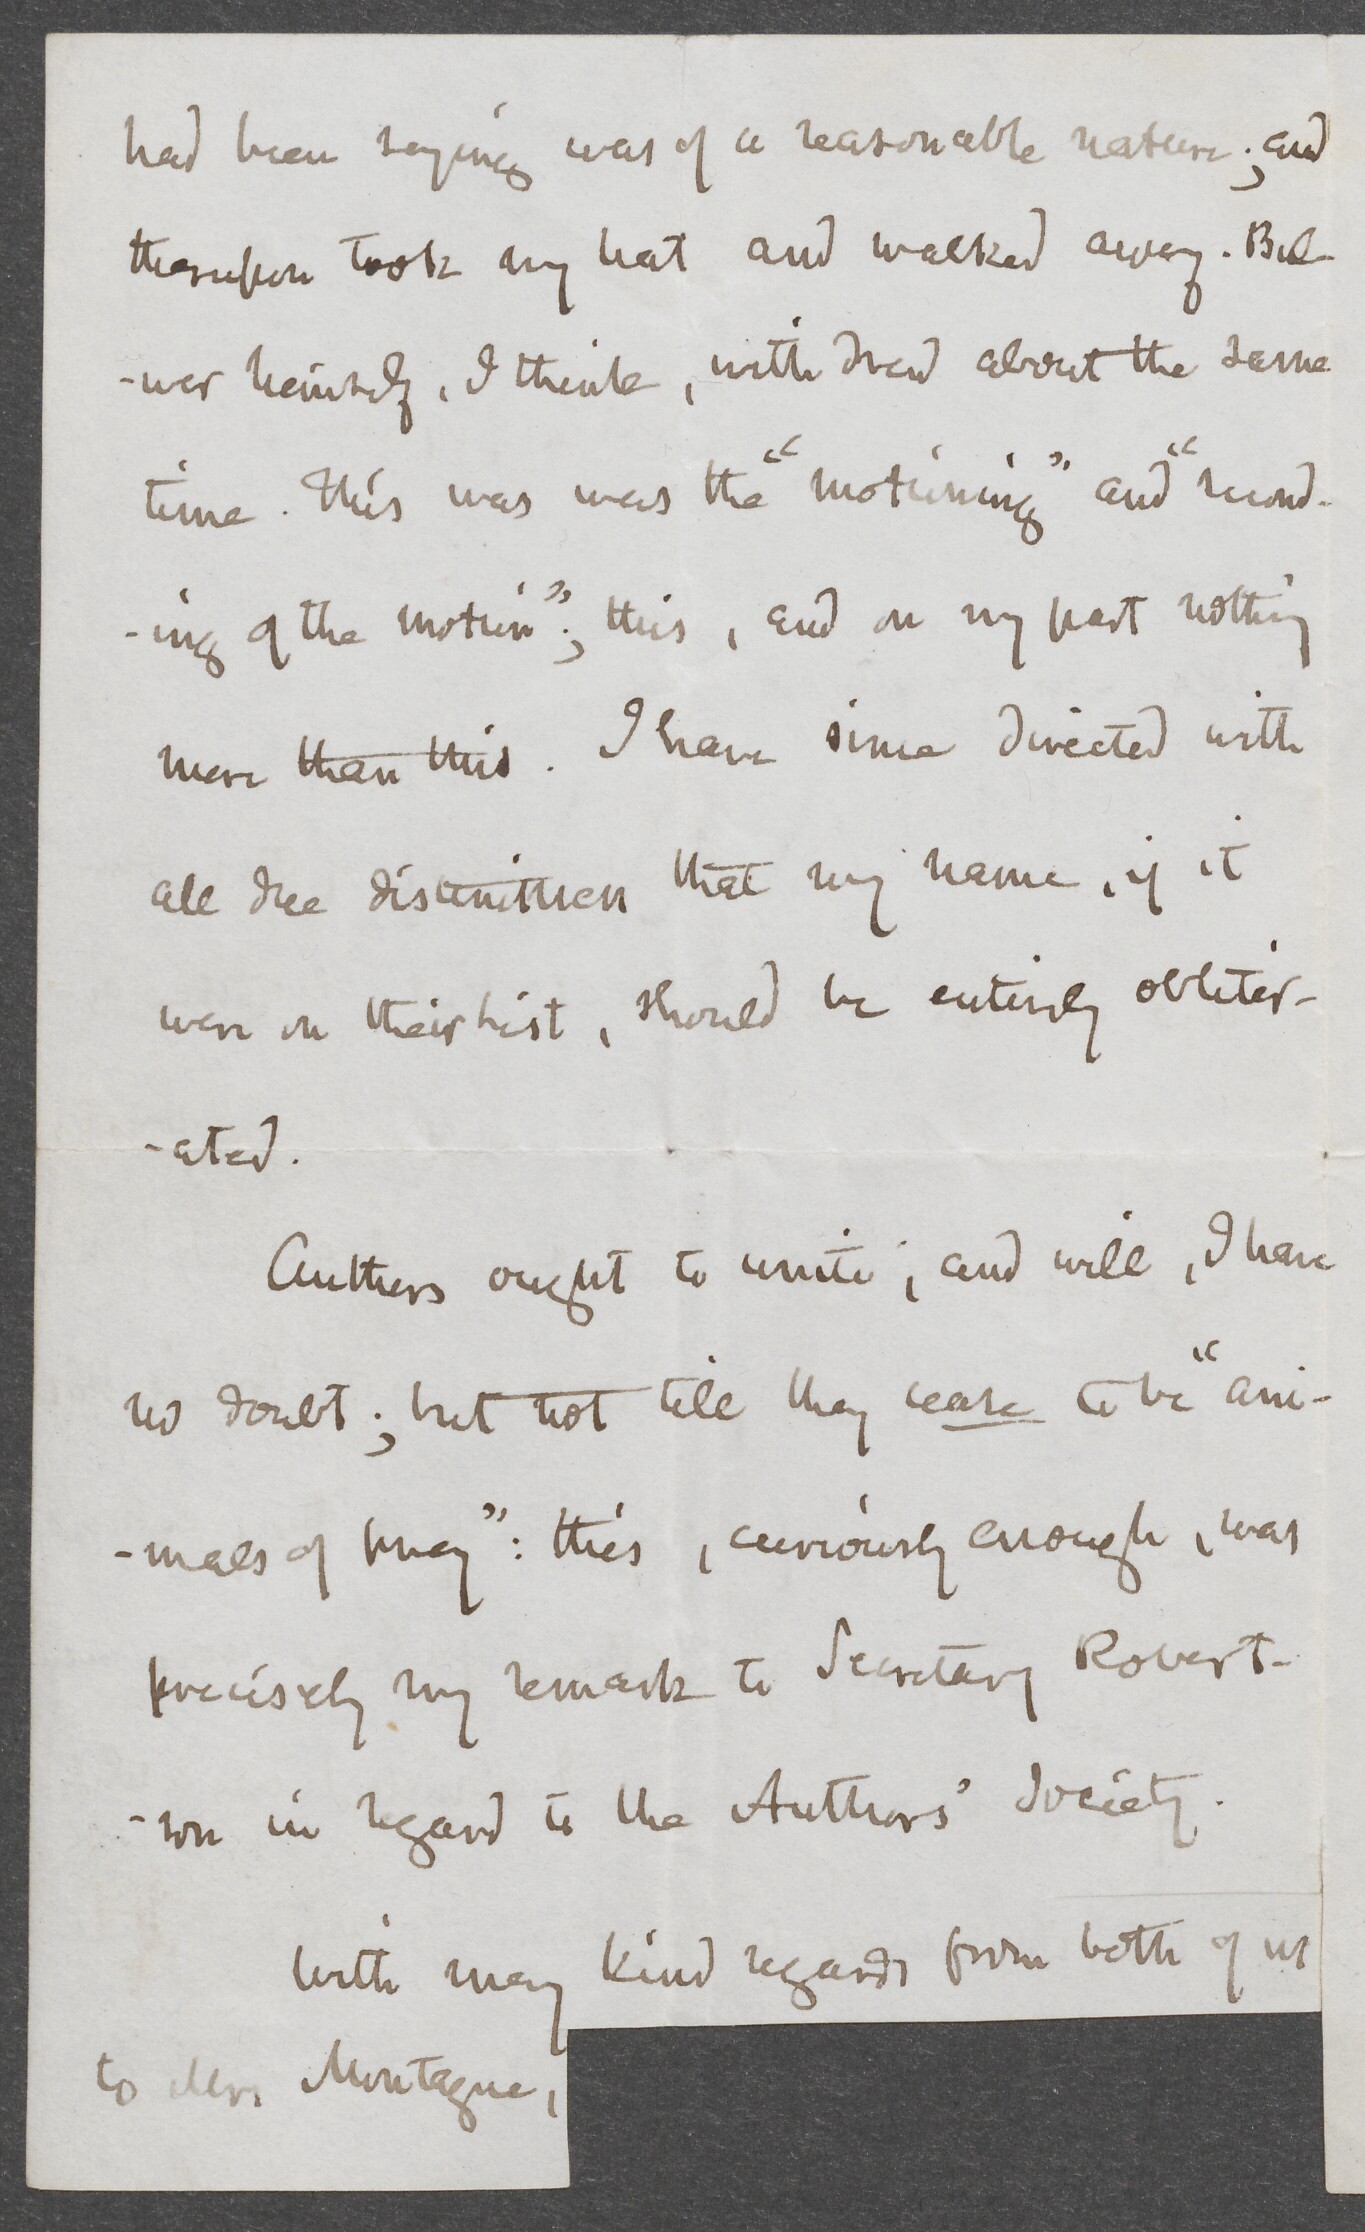 had been saying was of a reasonable nature; and
thereupon took my hat and walked away. Bul-
-wer heimself, I think, withdrew about the same
time. This was was the "motioning" and "second-
-ing of the motion"; this, and on my part nothing
more than this. I have since directed with
all due distinction that my name, if it
were on their list, should be entirely obliter-
-ated.
Authors ought to unite; and will, I have
no doubt; but not till they cease to be "ani-
-mals of prey": this, curiously enough, was
precisely my remark to Secretary Robert-
-son in regard to the Authors' Society.
With many kind regards from both of us
to Mrs. Montague,